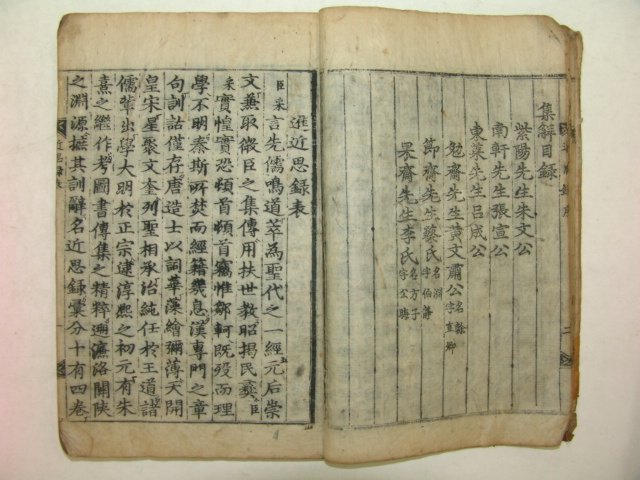 集解目錄
紫陽先生朱文公
南軒先生張宣公
東萊先生呂成公
勉齋先生黃文肅公名榦字直卿
節齋先生蔡氏名淵字伯靜
果齋先生李氏名方子字公晦
進近思錄表
臣采言先儒鳴道萃為聖代之一經元后崇
文兼取微臣之集傳用扶世敎昭揭民彝臣
采實惶實恐頓首頓首竊惟鄒軻旣歿而理
學不明秦斯所焚而經籍幾息漢專門之章
句訓詁僅存唐造士以詞華藻繪彌薄天開
皇宋星聚文奎列聖相承治純任於王道諸
儒輩出學大明於正宗逮淳熙之初元有朱
熹之繼作考圖書傳集之精粹遡濂洛關陝
之淵源摭其訓辭名近思錄彙分十有四卷